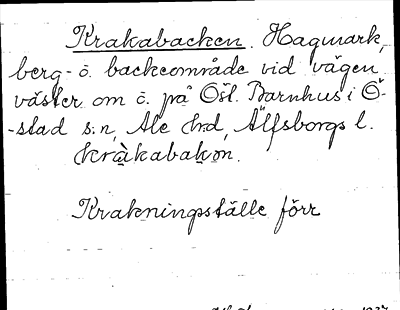 Krakabacken. Hagmark,
berg- o. backeområde vid vägen
väster om o. på Östl. Barnhus i Ö-
-stad s:n, Ale hrd, Älfsborgs l.
kràkabakon.
Krakningsställe förr